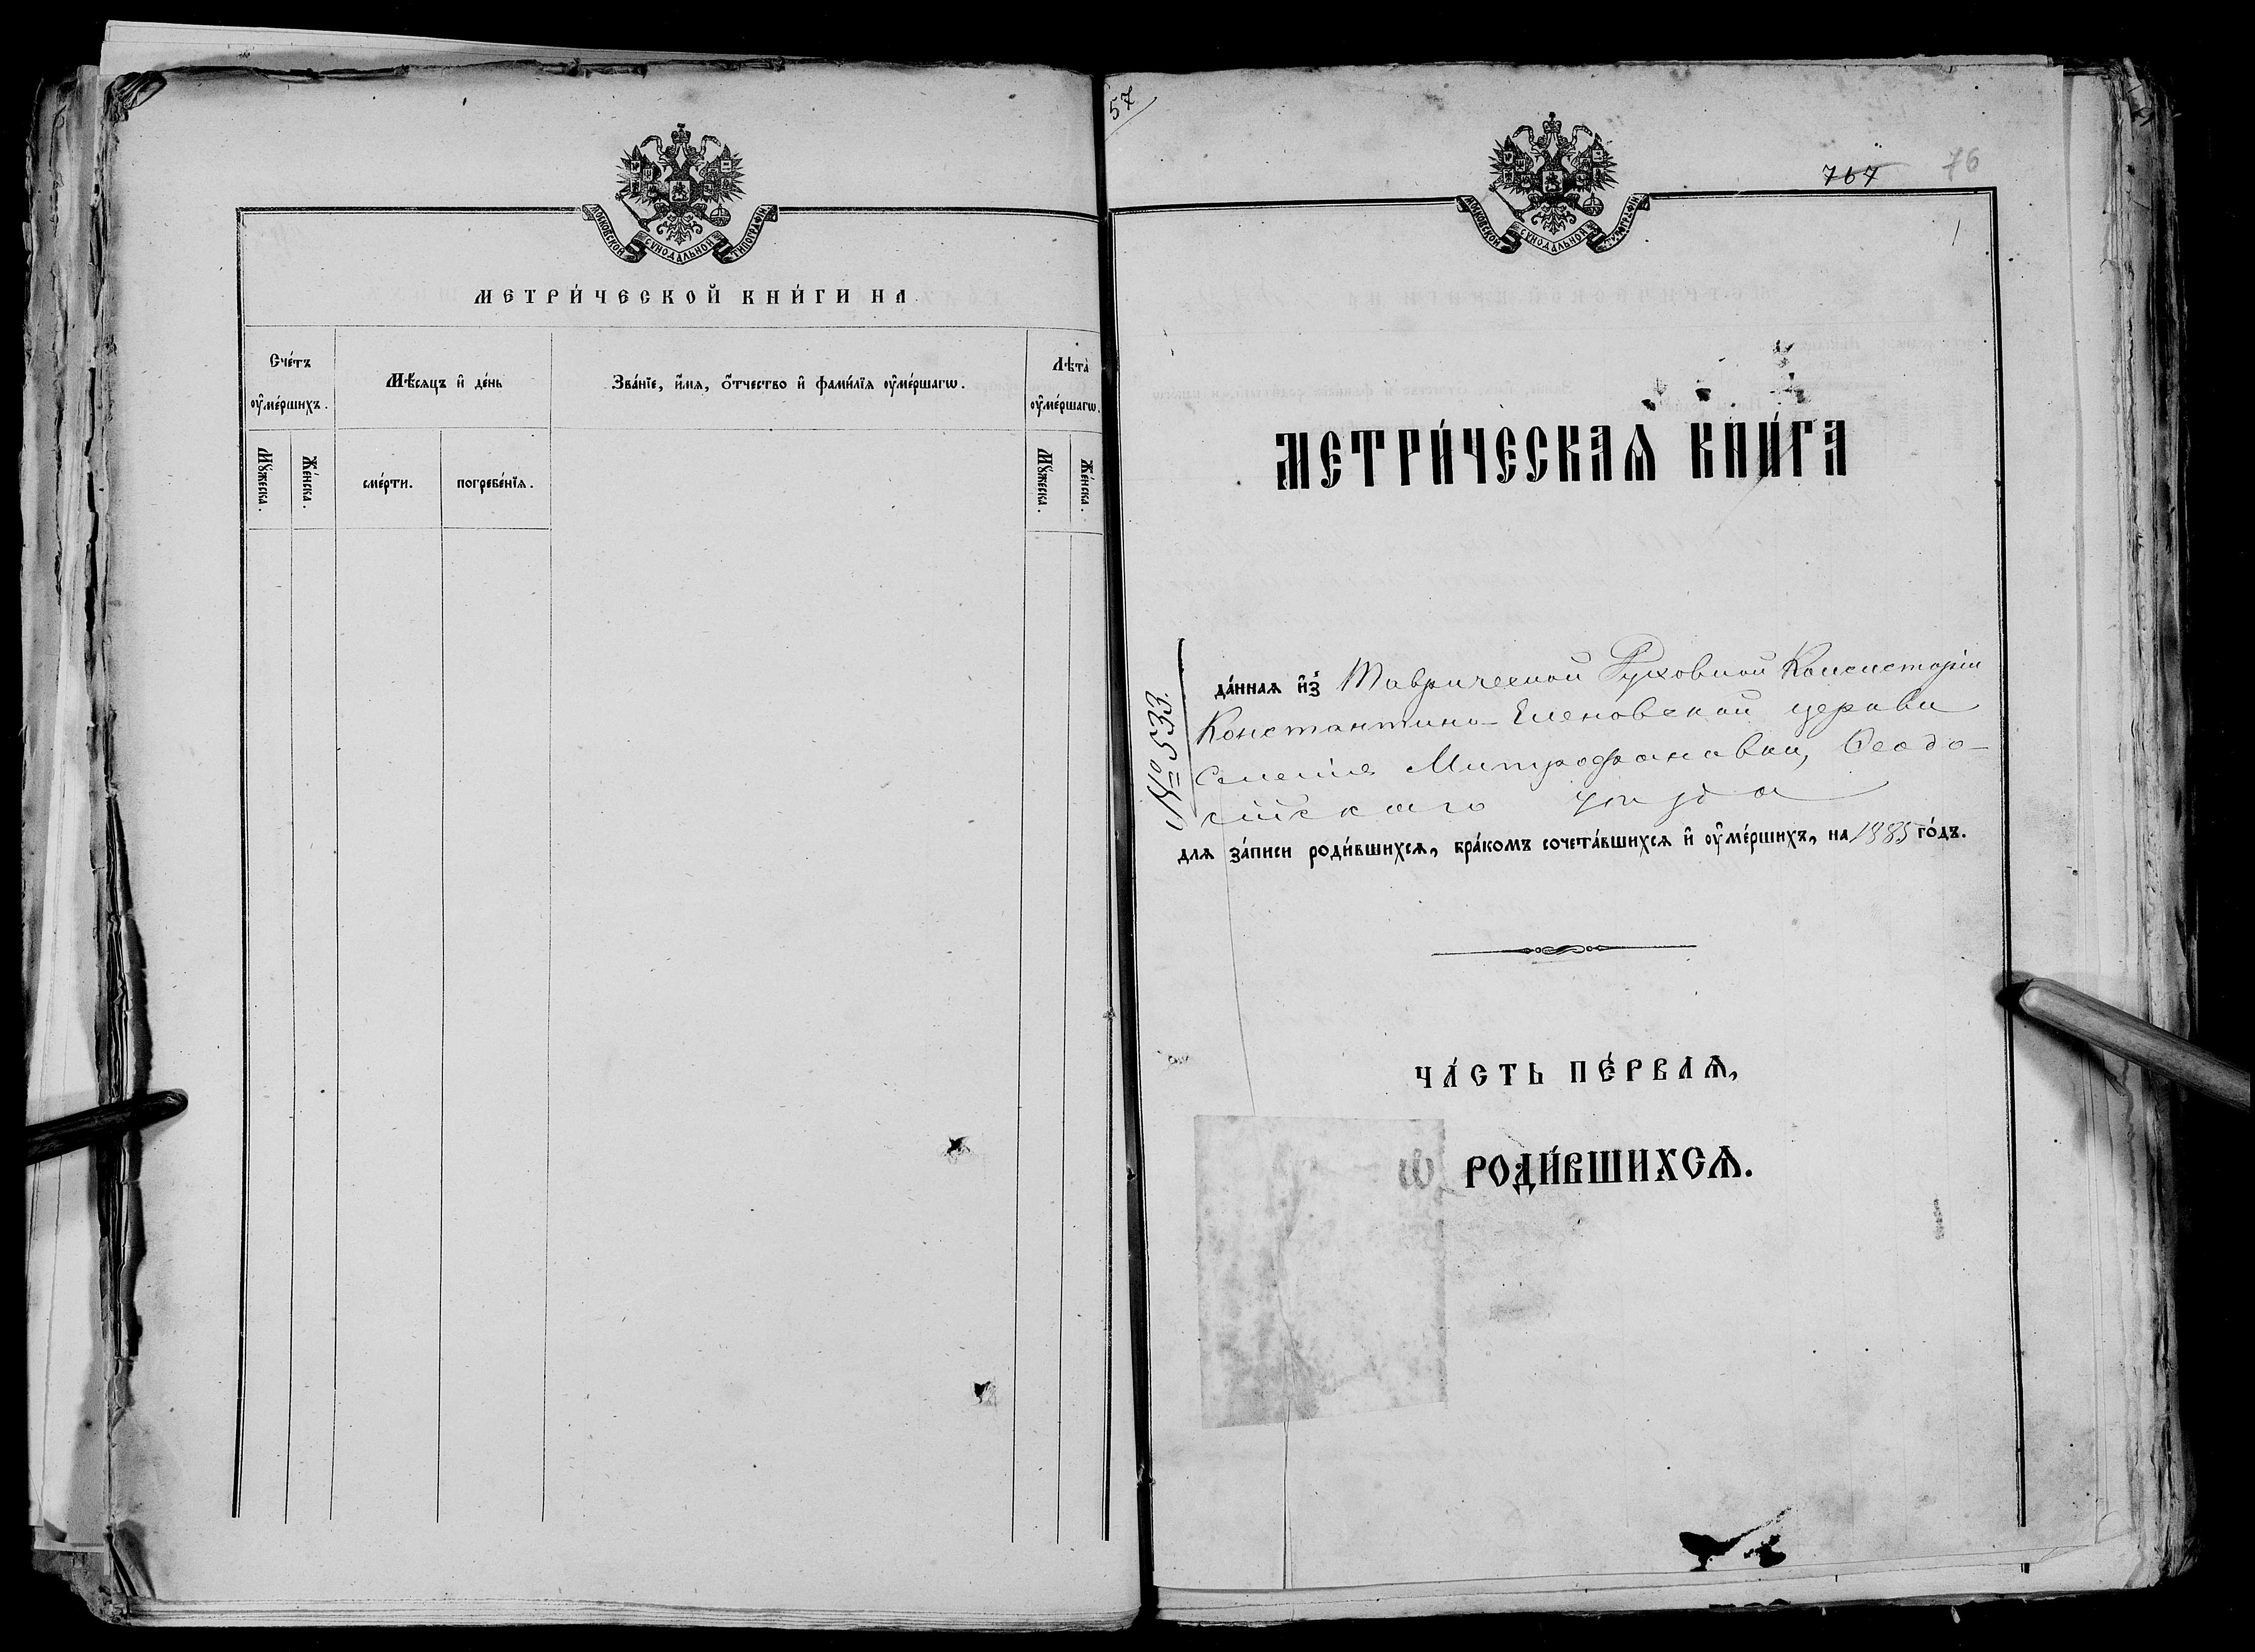 МОСКОВСКОЙ СѴНОДАЛЬНОЙ ТИПОГРАФІИ
МЕТРИ́ЧЕСКОЙ КНИ́ГИ НА
Сче́тъ оу҆ме́ршихъ.
Мѣ́сяцъ и҆ де́нь
Зва́нїе, и҆́мя, ѻ҆́тчество и҆ фами́лїя оу҆ме́ршагѡ.
Лѣта̀ оу҆ме́ршагѡ.
Мꙋ́жеска.
Же́нска.
сме́рти.
погребе́нїя.
Мꙋ́жеска.
Же́нска.
57
767
76
1
МОСКОВСКОЙ СѴНОДАЛЬНОЙ ТИПОГРАФІИ
МЕТРИ́ЧЕСКАѦ КНИ́ГА
№ 533.
да́нная и҆з̾ Таврической Духовной Консисторіи
Константино-Еленовской церкви
Селенія Митрофановки, Ѳеодо-
сійскаго уѣзда
для за́писи роди́вшихся, бра́комъ сочета́вшихся и҆ оу҆ме́ршихъ, на 1885 го́дъ.
ЧА́СТЬ ПЕ́РВАѦ,
Ѡ҆ РОДИ́ВШИХСѦ.